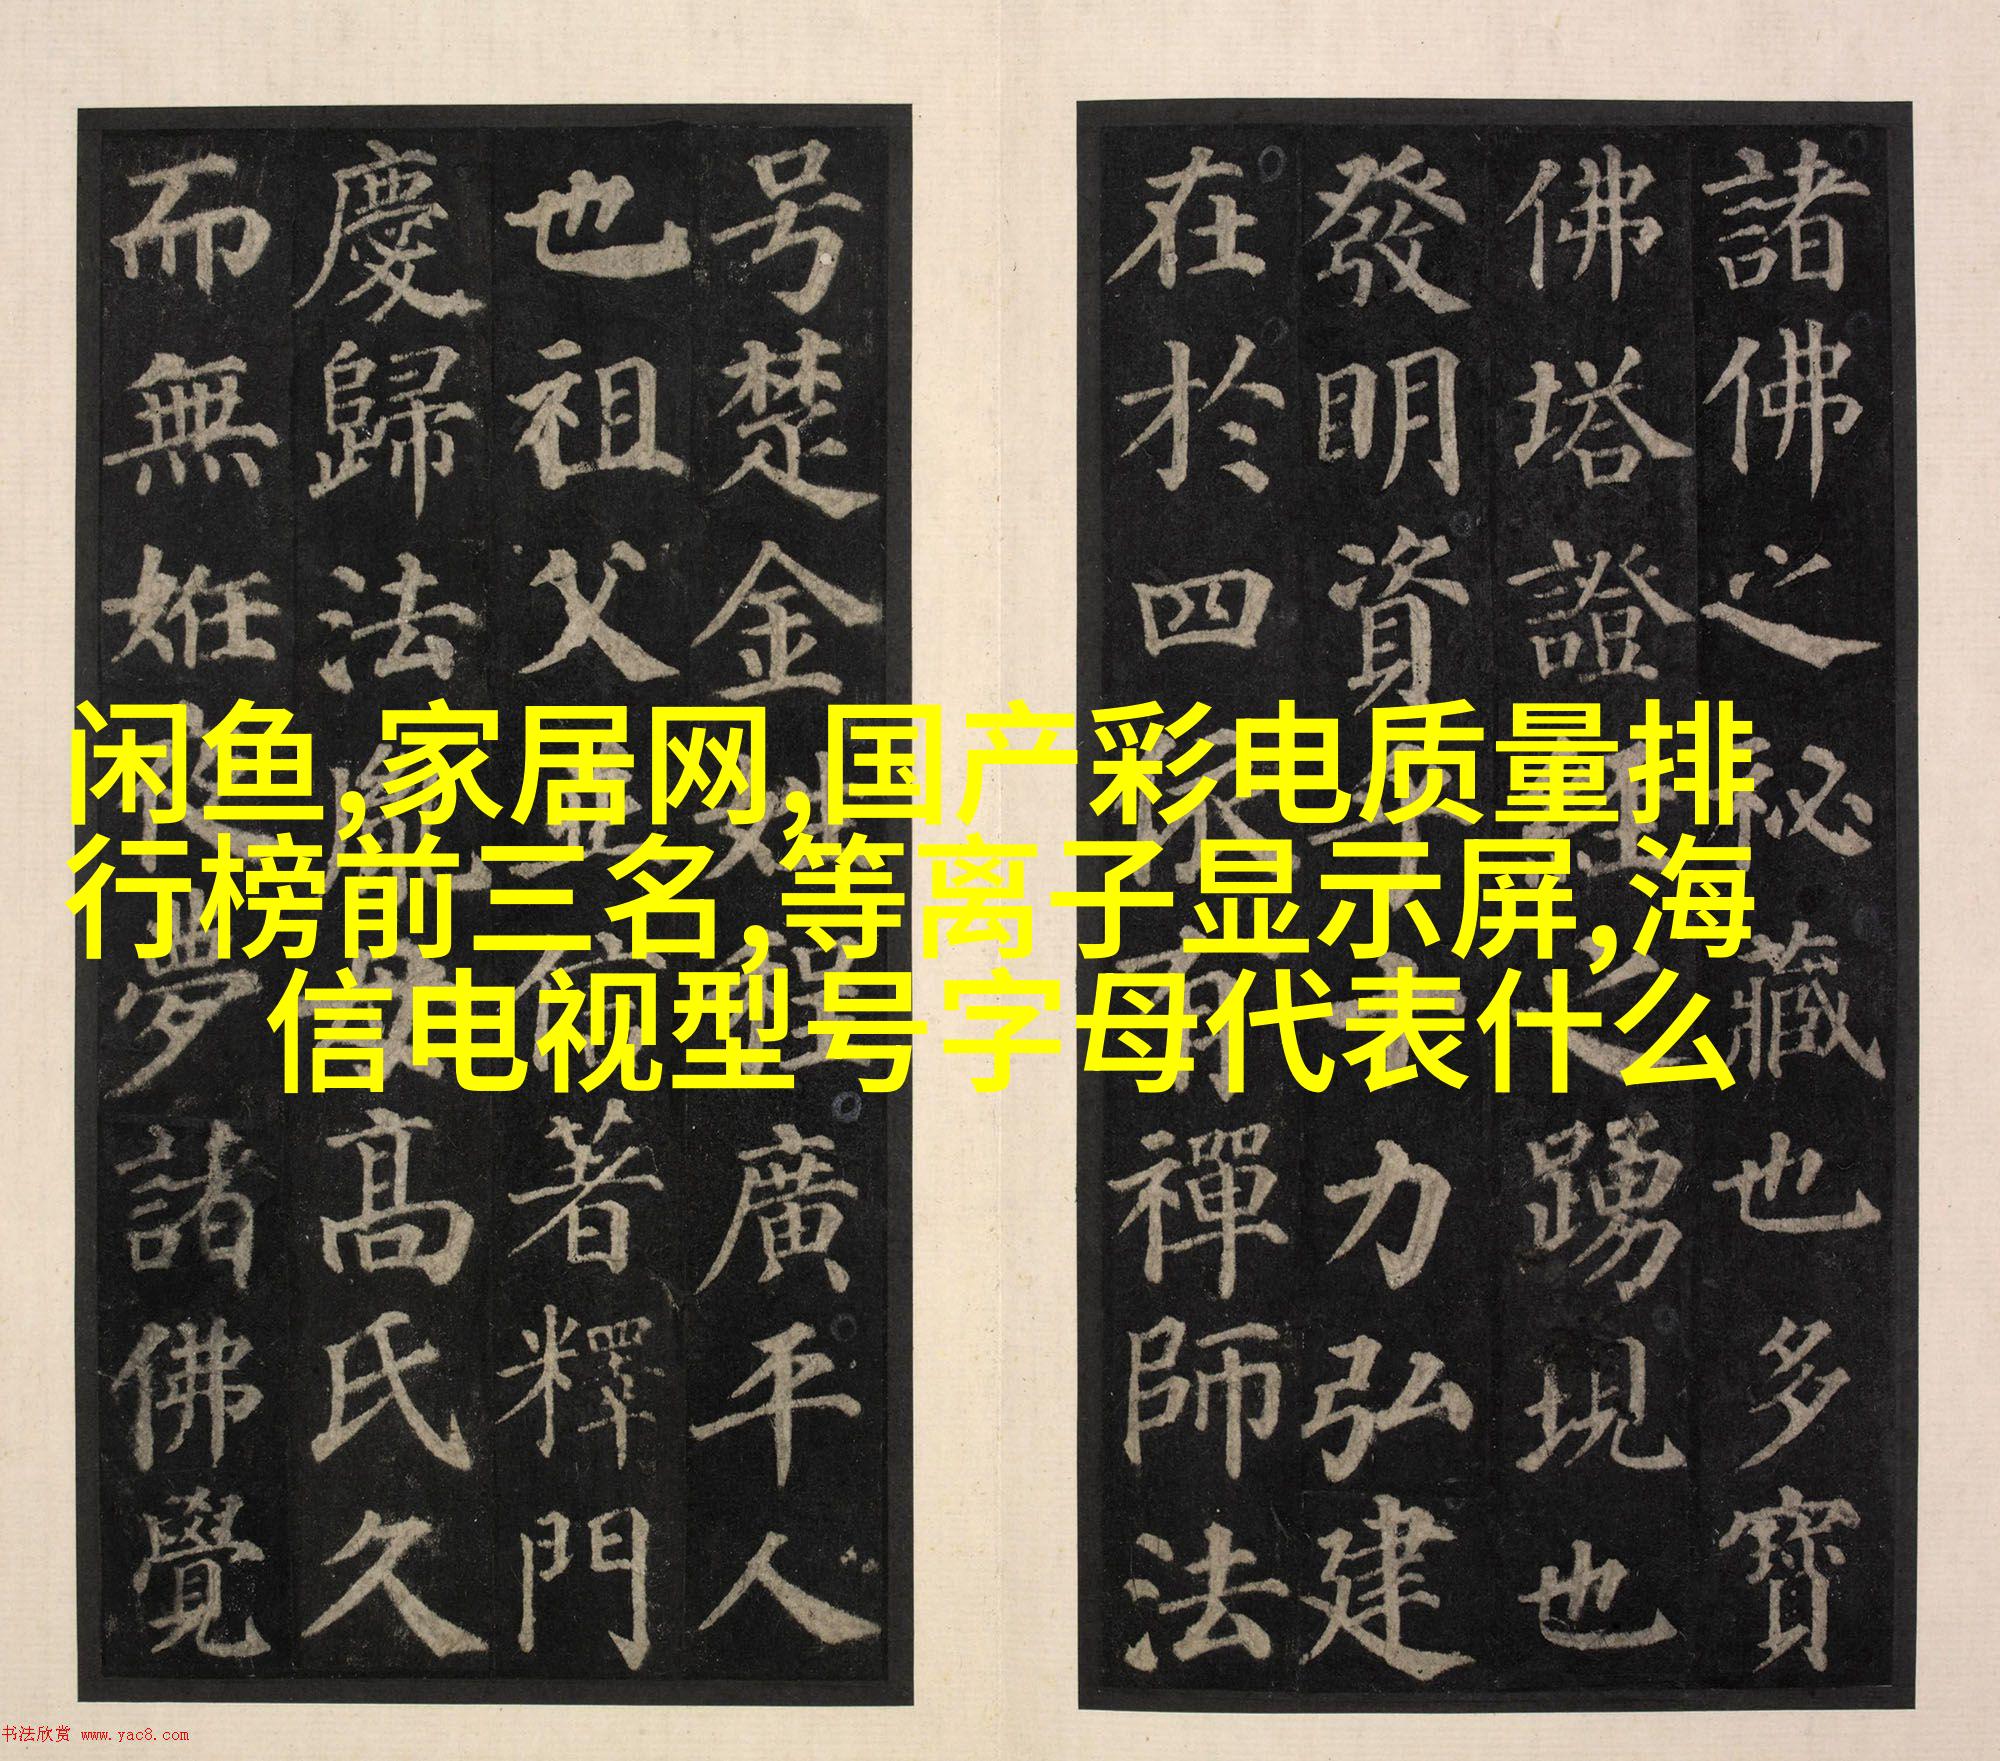 諸佛之秘藏也多寶
佛塔證經之踴現也
發明資乎十力弘建
在於四依有禪師法
号楚金姓程廣平人
也祖父並信著釋門
慶歸法胤母高氏久
而無姙夜夢諸佛覺
闲鱼,家居网,国产彩电质量排
行榜前三名,等离子显示屏,海
信电视型号字母代表什么
书法欣赏 www.yac8.com